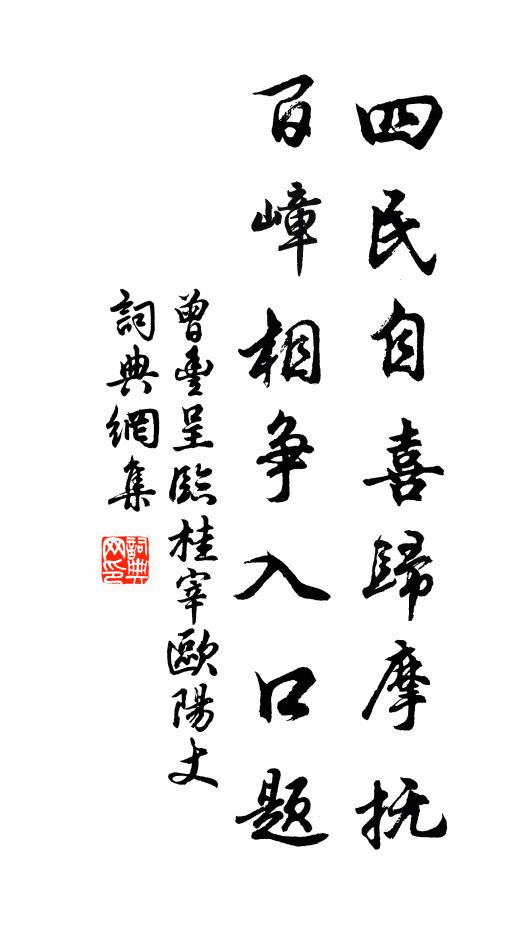 四民自喜歸摩抚
百嶂相争入口题
曾豊呈臨桂宰歐陽丈
詞典網集
詞典网印